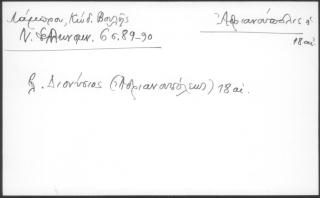 Λάμπρου, Κώδ. Βουλῆς
Ν. Ἑλληνομν. 6 σ. 89-90
Ἀδριανούπολις
18 αἰ.
βλ. Διονύσιος (Ἀδριανουπόλεως) 18 αἰ.